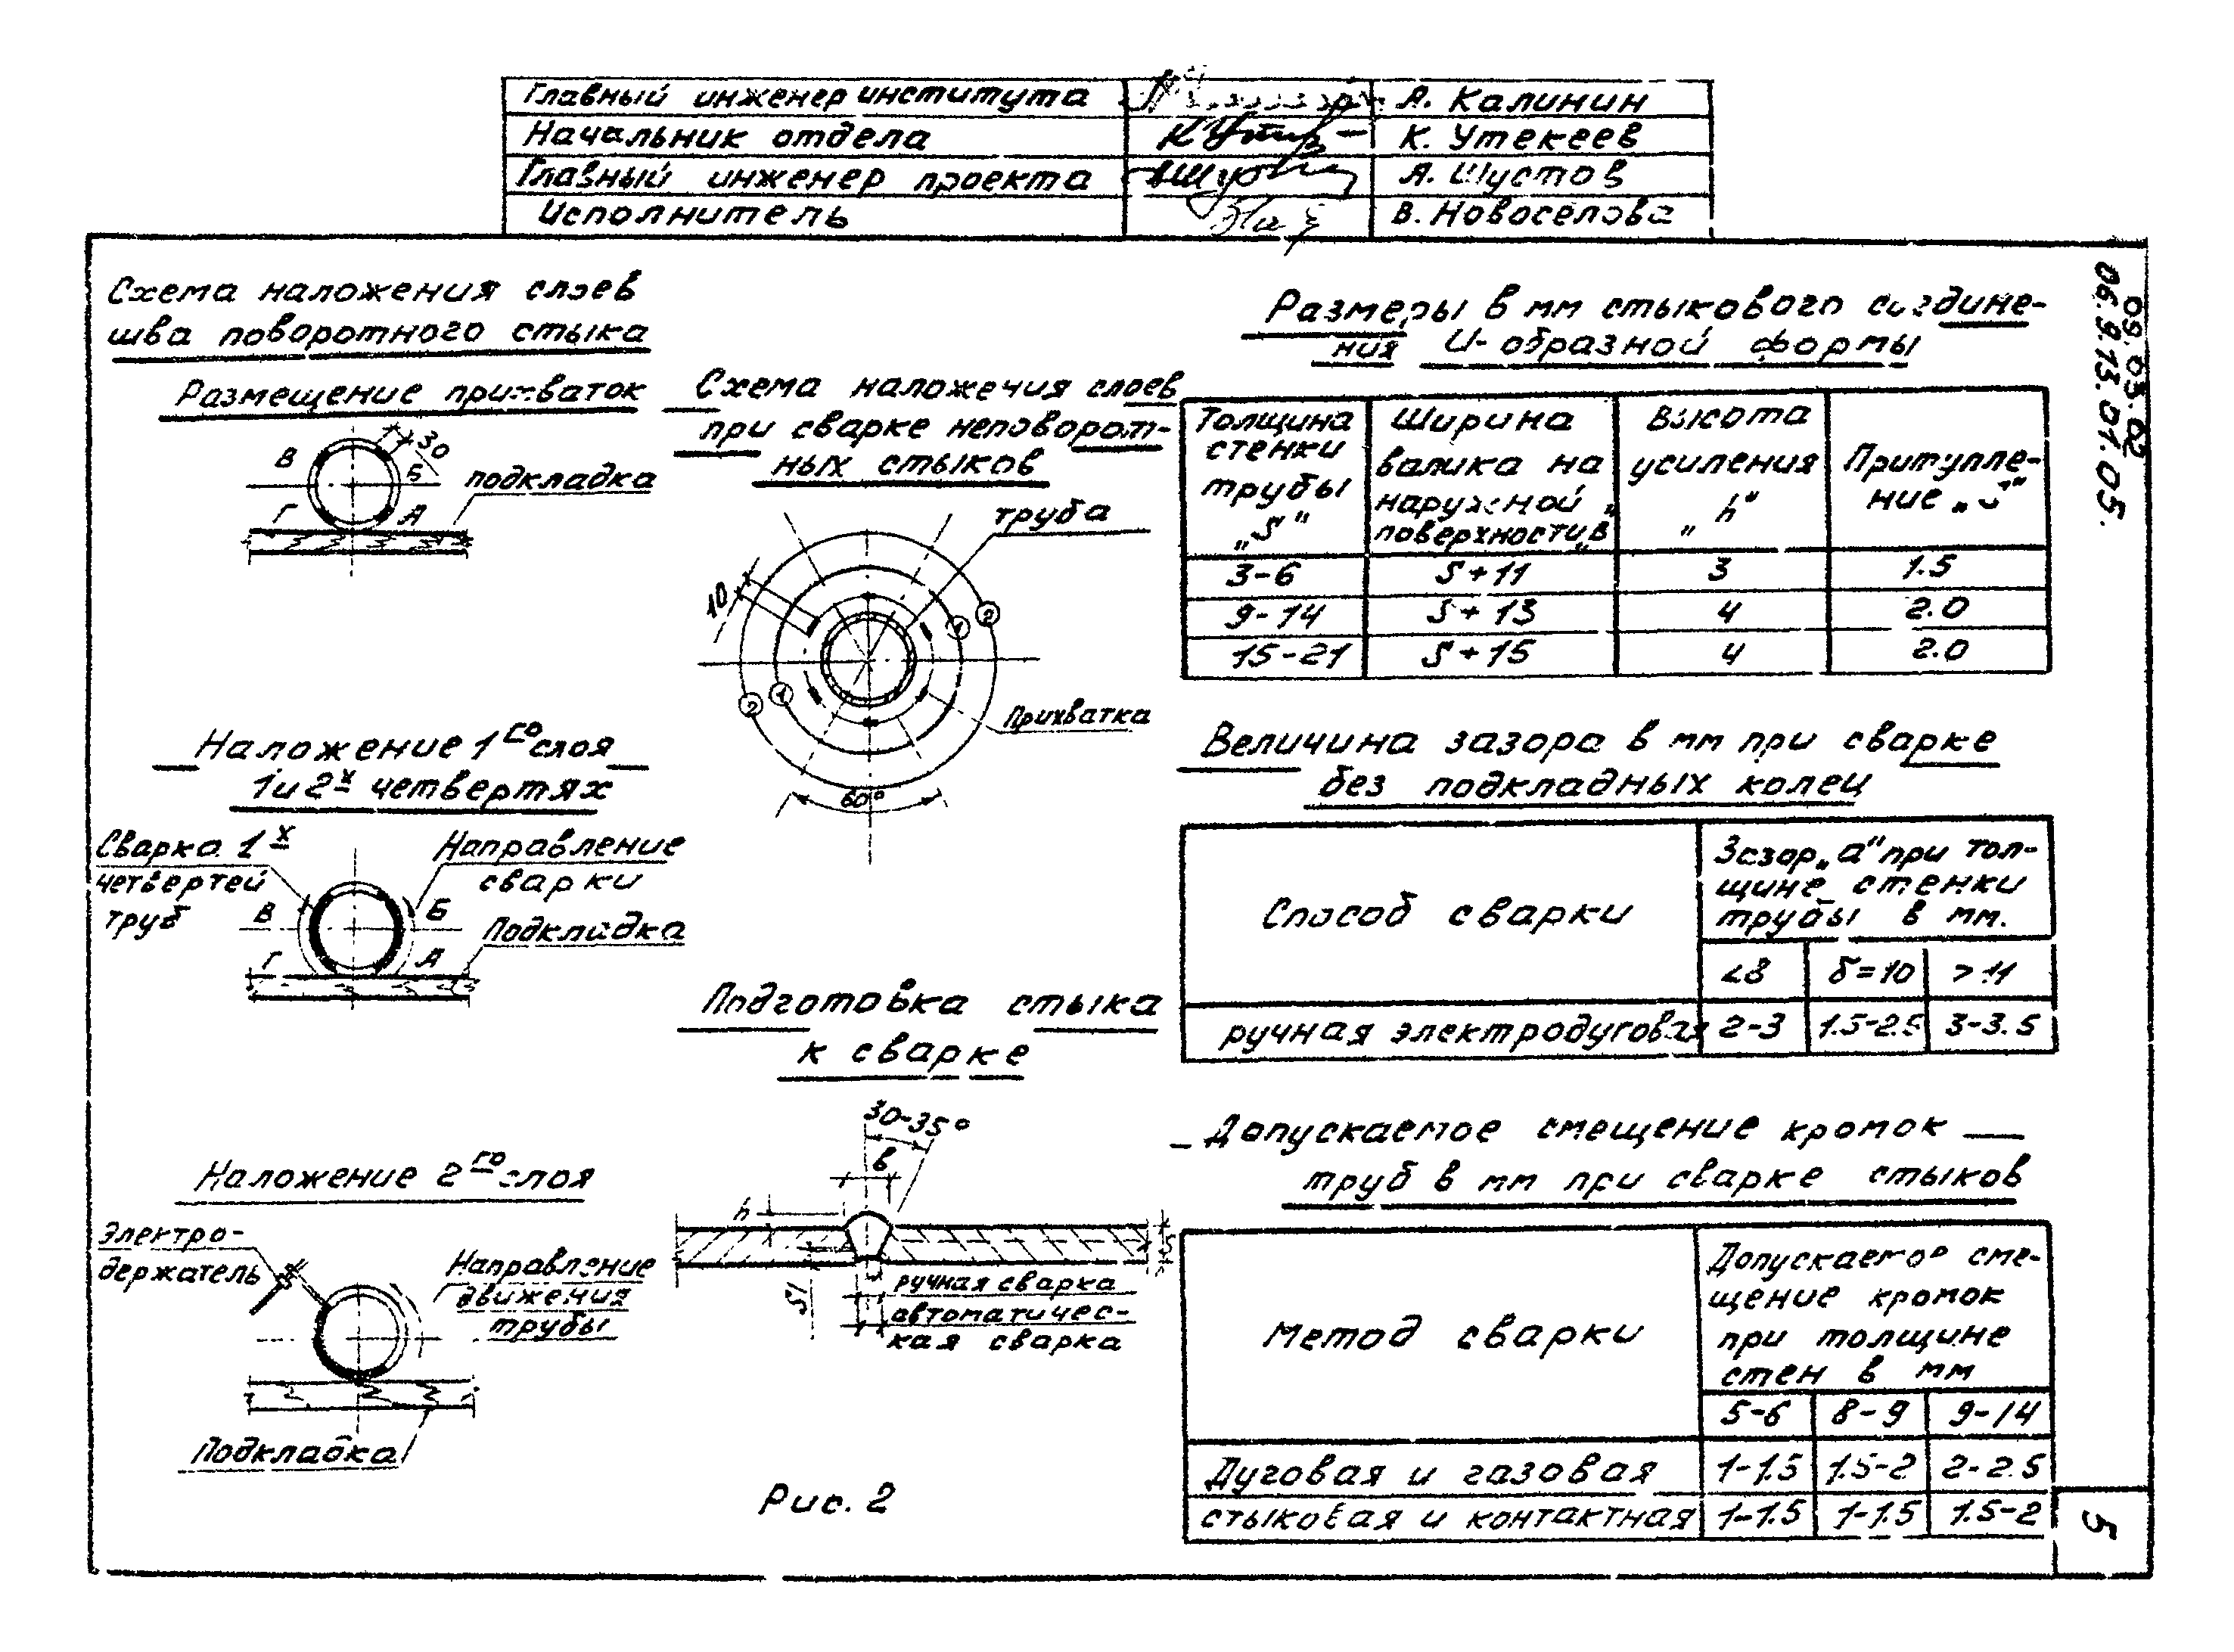 Главный инженер института А. Калинин
Начальник отдела К. Утекеев
Главный инженер проекта А. Шустов
Исполнитель В. Новоселова
09.03.02
06.9.13.01.05.
Схема наложения слоев
шва поворотного стыка
Размещение прихваток
30
В
Б
Г
А
подкладка
Наложение 1го слоя
1 и 2х четвертях
Сварка 1х
четвертей
труб
Направление
сварки
В
Б
Г
А
Подкладка
Наложение 2го слоя
Электро-
держатель
Направление
движения
трубы
Подкладка
Схема наложения слоев
при сварке неповорот-
ных стыков
труба
10
1
2
1
2
Прихватка
60°
Подготовка стыка
к сварке
30-35°
в
h
S
S1
ручная сварка
автоматичес-
кая сварка
Рис. 2
Размеры в мм стыкового соедине-
ния И-образной формы
Толщина
стенки
трубы
„S"
Ширина
валика на
наружной
поверхности „в"
Высота
усиления
„h"
Притупле-
ние „S"
3-6 S+11 3 1.5
9-14 S+13 4 2.0
15-21 S+15 4 2.0
Величина зазора в мм при сварке
без подкладных колец
Способ сварки
Зазор „а" при тол-
щине стенки
трубы в мм.
<8 δ=10 >11
ручная электродуговая 2-3 1.5-2.5 3-3.5
Допускаемое смещение кромок
труб в мм при сварке стыков
Метод сварки
Допускаемое сме-
щение кромок
при толщине
стен в мм
5-6 8-9 9-14
Дуговая и газовая 1-1.5 1.5-2 2-2.5
стыковая и контактная 1-1.5 1-1.5 1.5-2
5